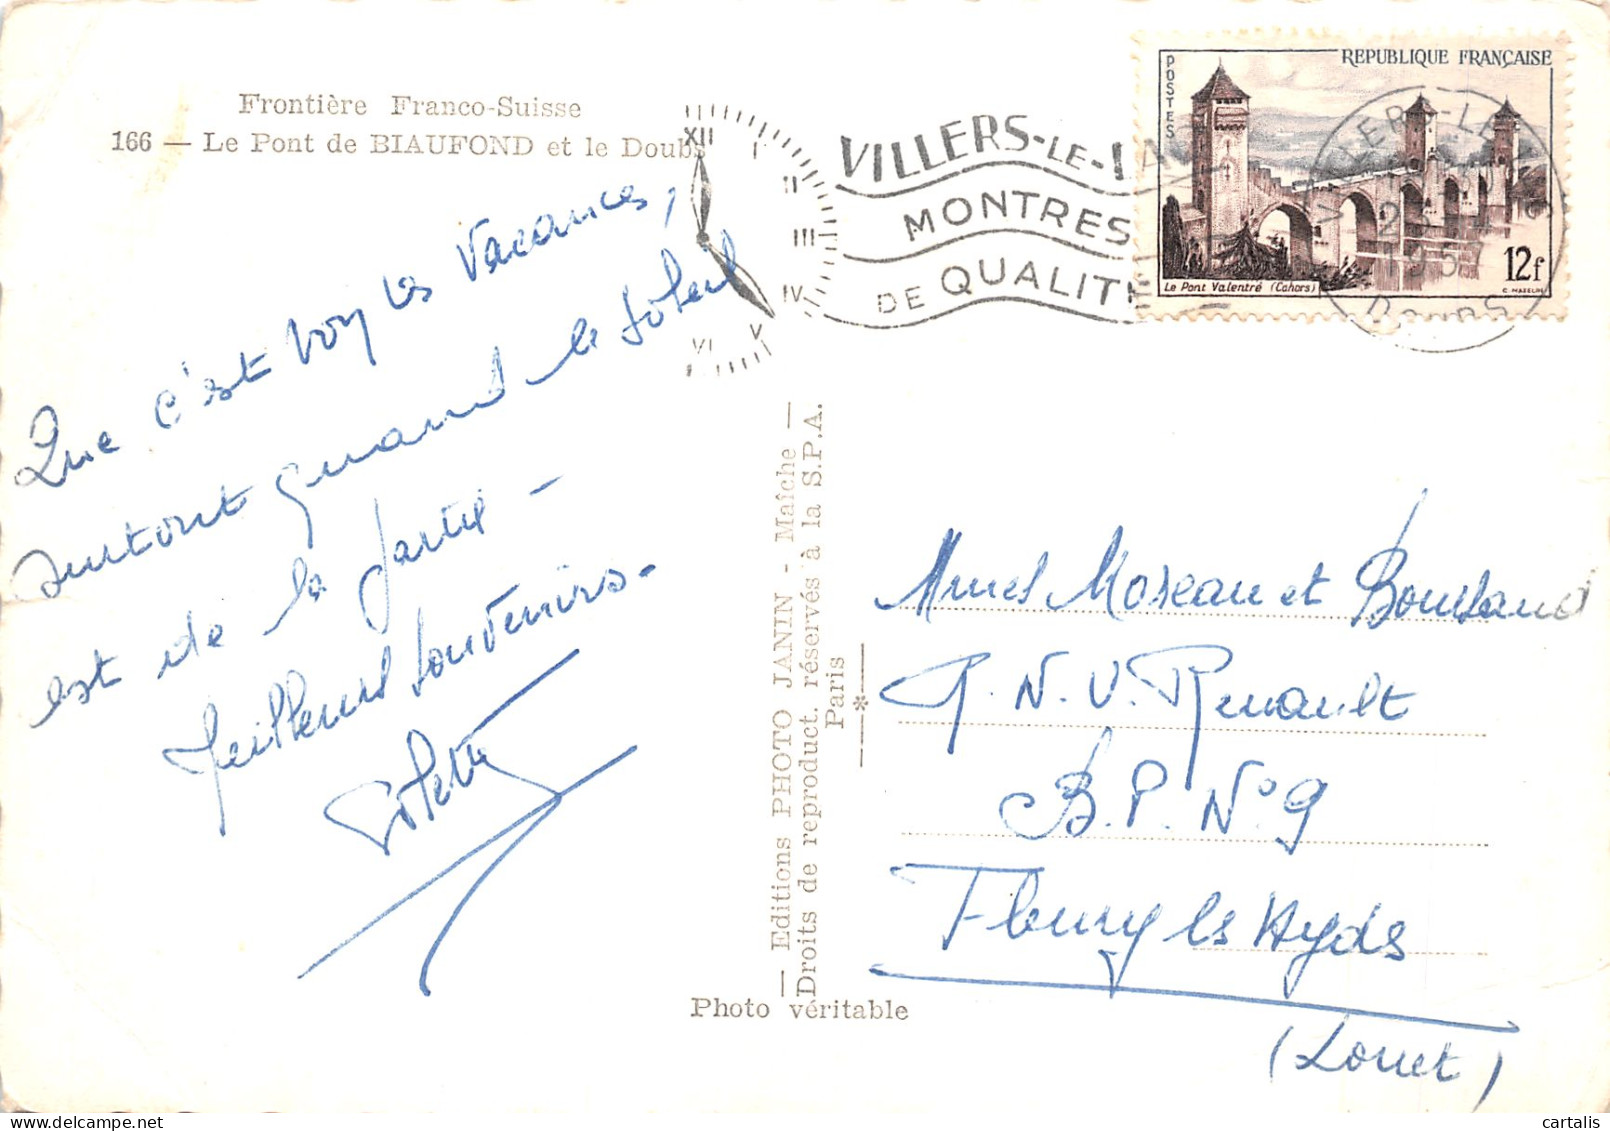 Frontière Franco-Suisse
166 — Le Pont de BIAUFOND et le Doubs
Que c'est bon les vacances,
surtout quand le soleil
est de la partie -
Meilleurs souvenirs.
Colette
XII I II III IV V VI
VILLERS-LE-LAC
MONTRES
DE QUALITÉ
POSTES
REPUBLIQUE FRANÇAISE
12f
Le Pont Valentré (Cahors)
C. MAZELIN
VILLERS-LE-LAC
1957
DOUBS
— Editions PHOTO JANIN - Maîche —
Droits de reproduct. réservés à la S.P.A.
Paris
*
Photo véritable
Mmes Moreau et
R.N.U. Renault
B.P. N° 9
Fleury les Aydes
(Loiret)
cartalis